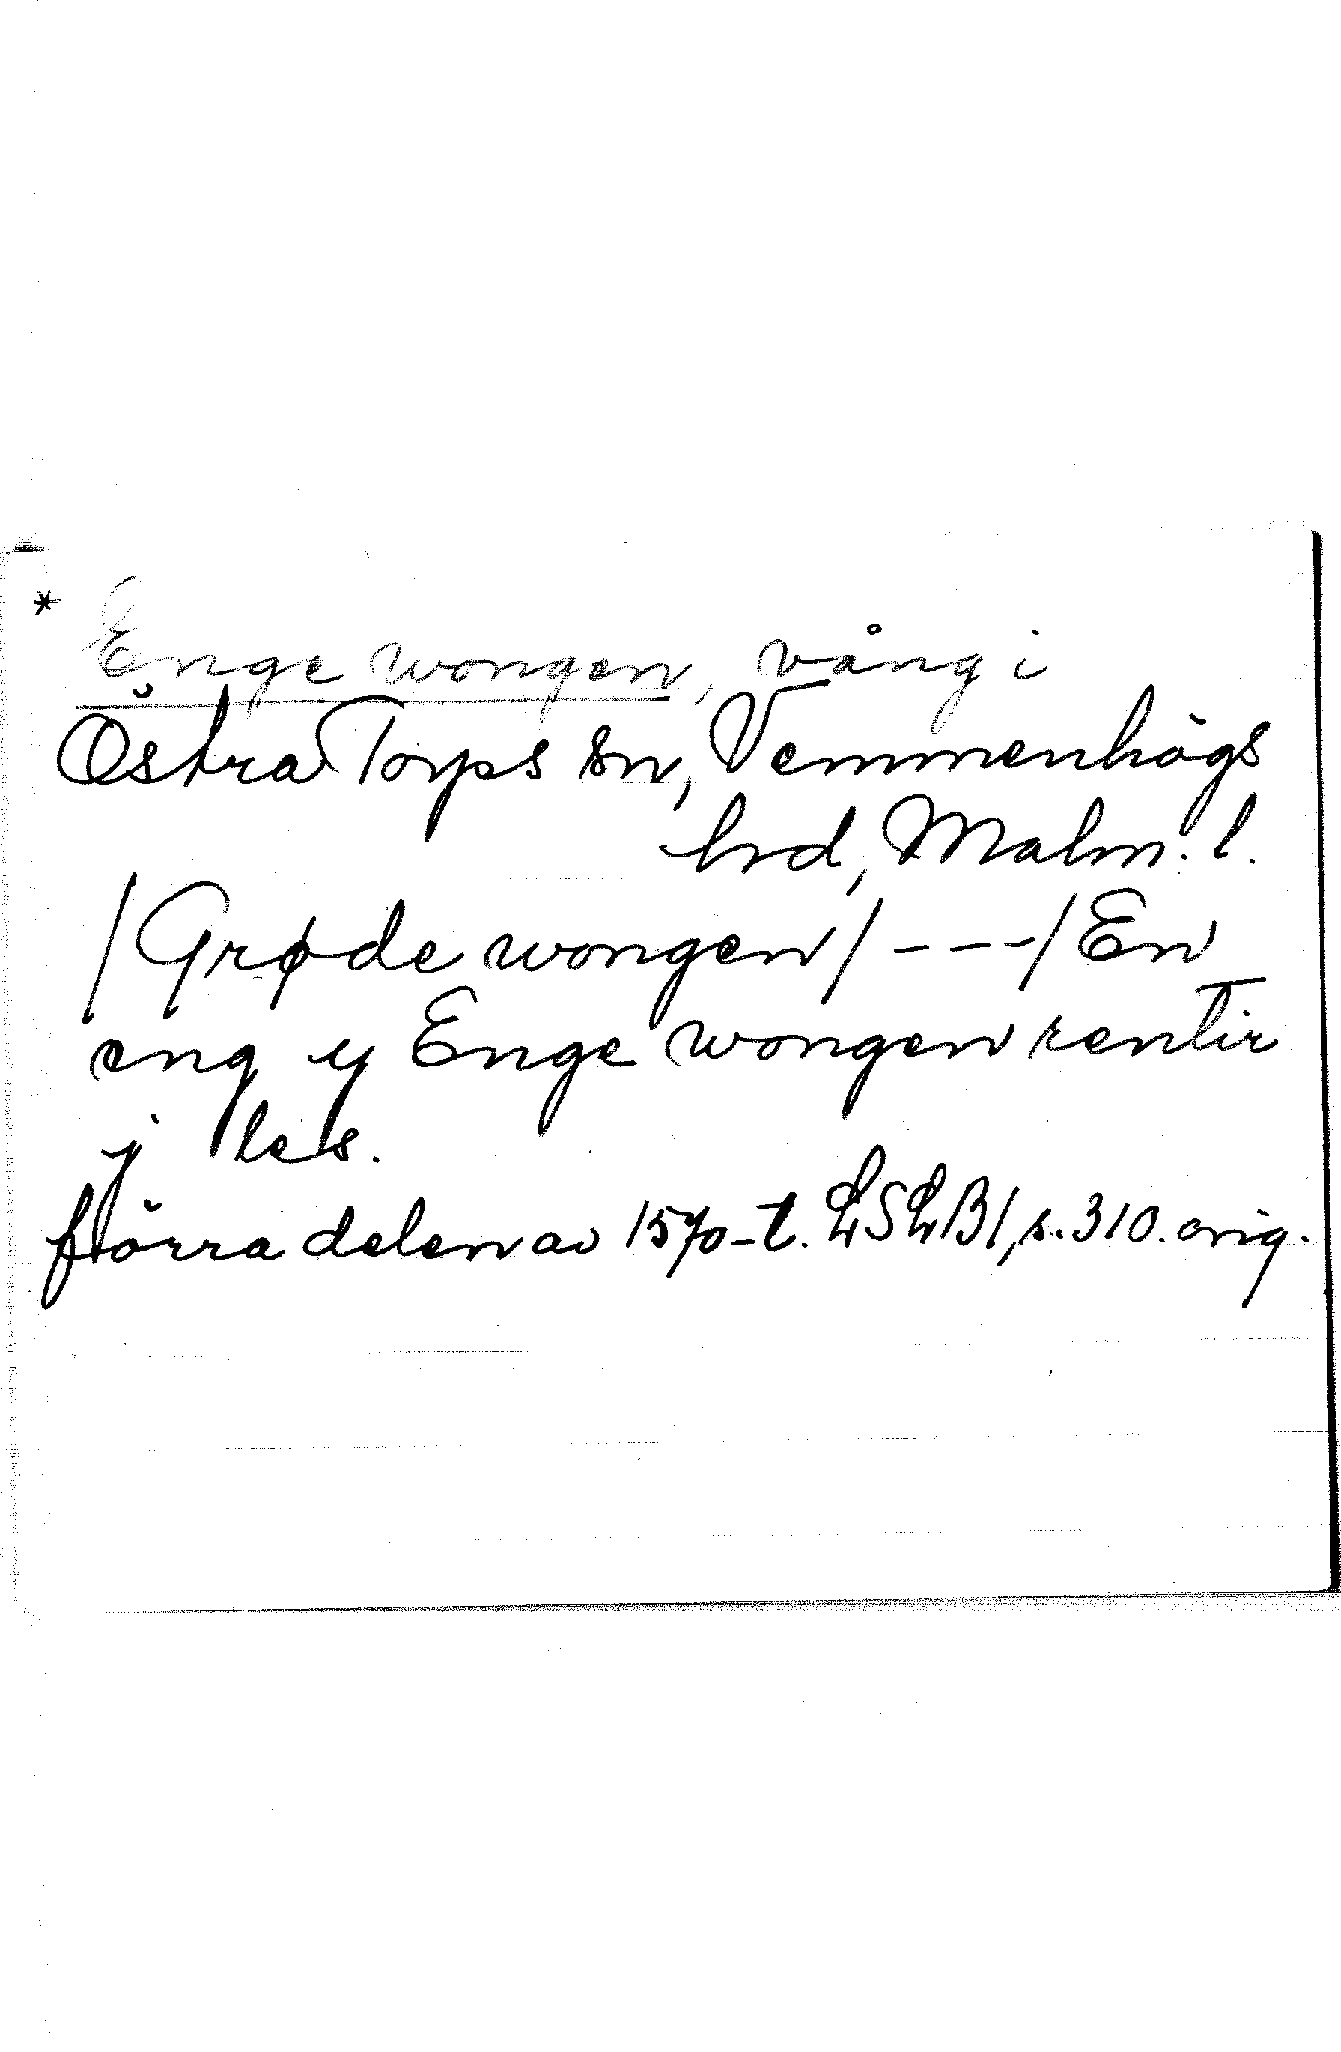 * Enge wongen, vång i
Östra Torps sn, Vemmenhögs
hrd, Malm. l.
/Grøde wongen/ - - - / En
eng y Enge wongen rentir
j les.
förra delen av 1570-t. LSLB1, s. 310. orig.